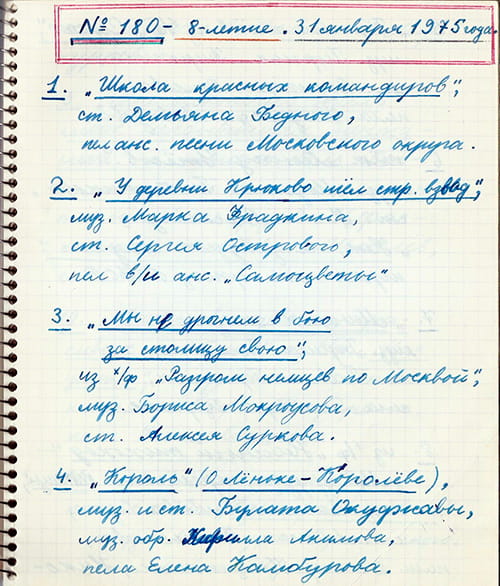 № 180 - 8-летие. 31 января 1975 года.
1. „Школа красных командиров",
ст. Демьяна Бедного,
пел анс. песни Московского округа.
2. „У деревни Крюково шёл стр. взвод",
муз. Марка Фрадкина,
ст. Сергея Острового,
пел в/и анс. „Самоцветы"
3. „Мы не дрогнем в бою
за столицу свою",
из х/ф „Разгром немцев по Москвой",
муз. Бориса Мокроусова,
ст. Алексея Суркова.
4. „Король" (О Лёньке - Королёве),
муз. и ст. Булата Окуджавы,
муз. обр. Кирилла Акимова,
пела Елена Камбурова.